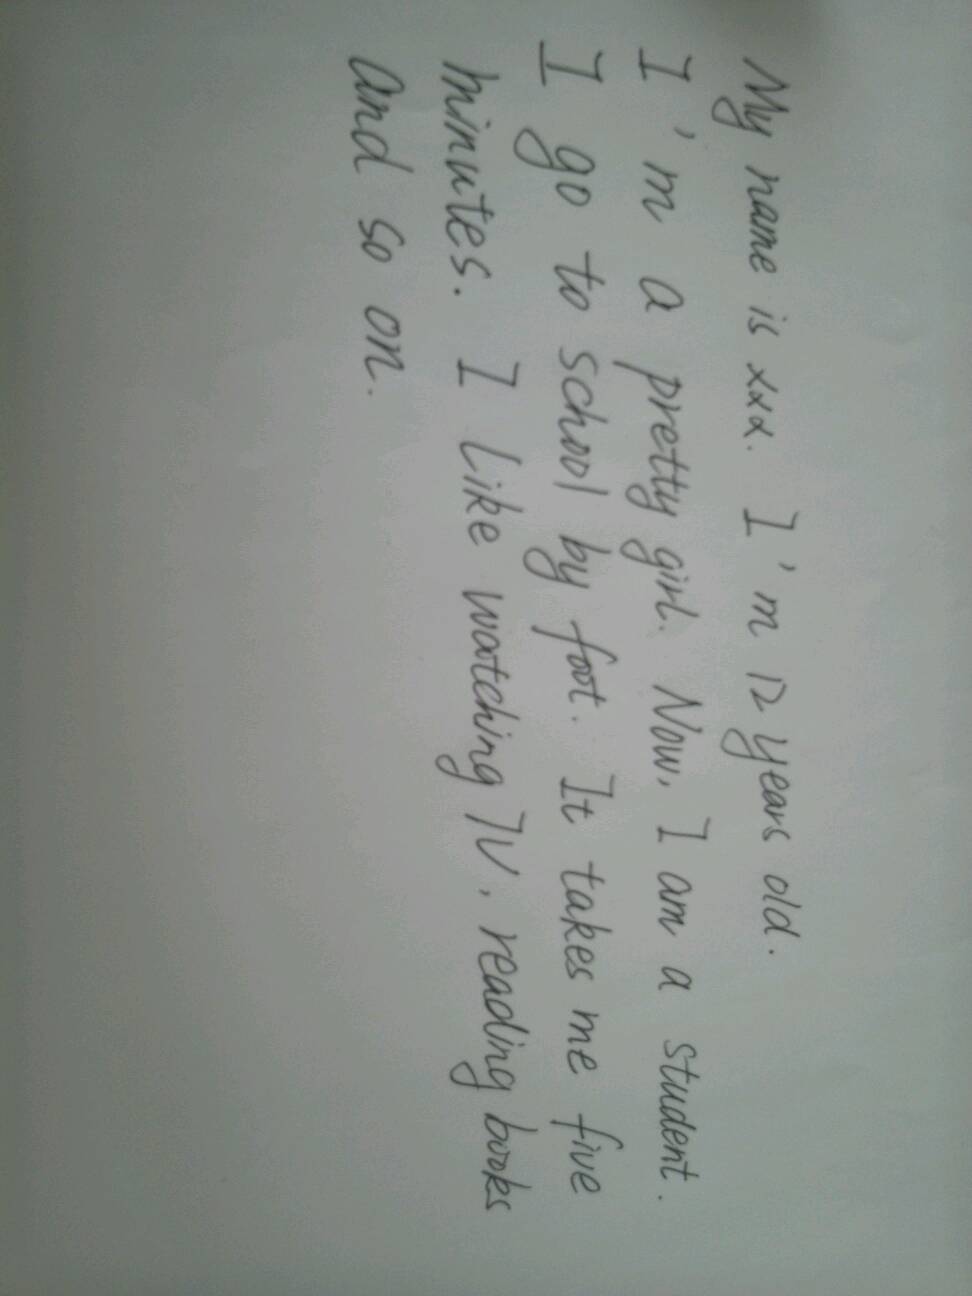 My name is xxx. I'm 12 years old.
I'm a pretty girl. Now, I am a student.
I go to school by foot. It takes me five
minutes. I like watching TV, reading books
and so on.